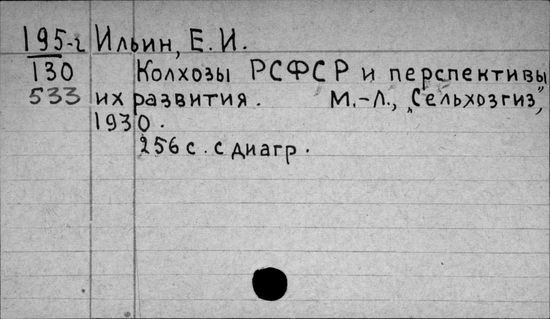 195-г Ильин, Е. И.
130 Колхозы РСФСР и перспективы
533 их развития. М.-Л., „Сельхозгиз",
1930.
256 с. с диагр.